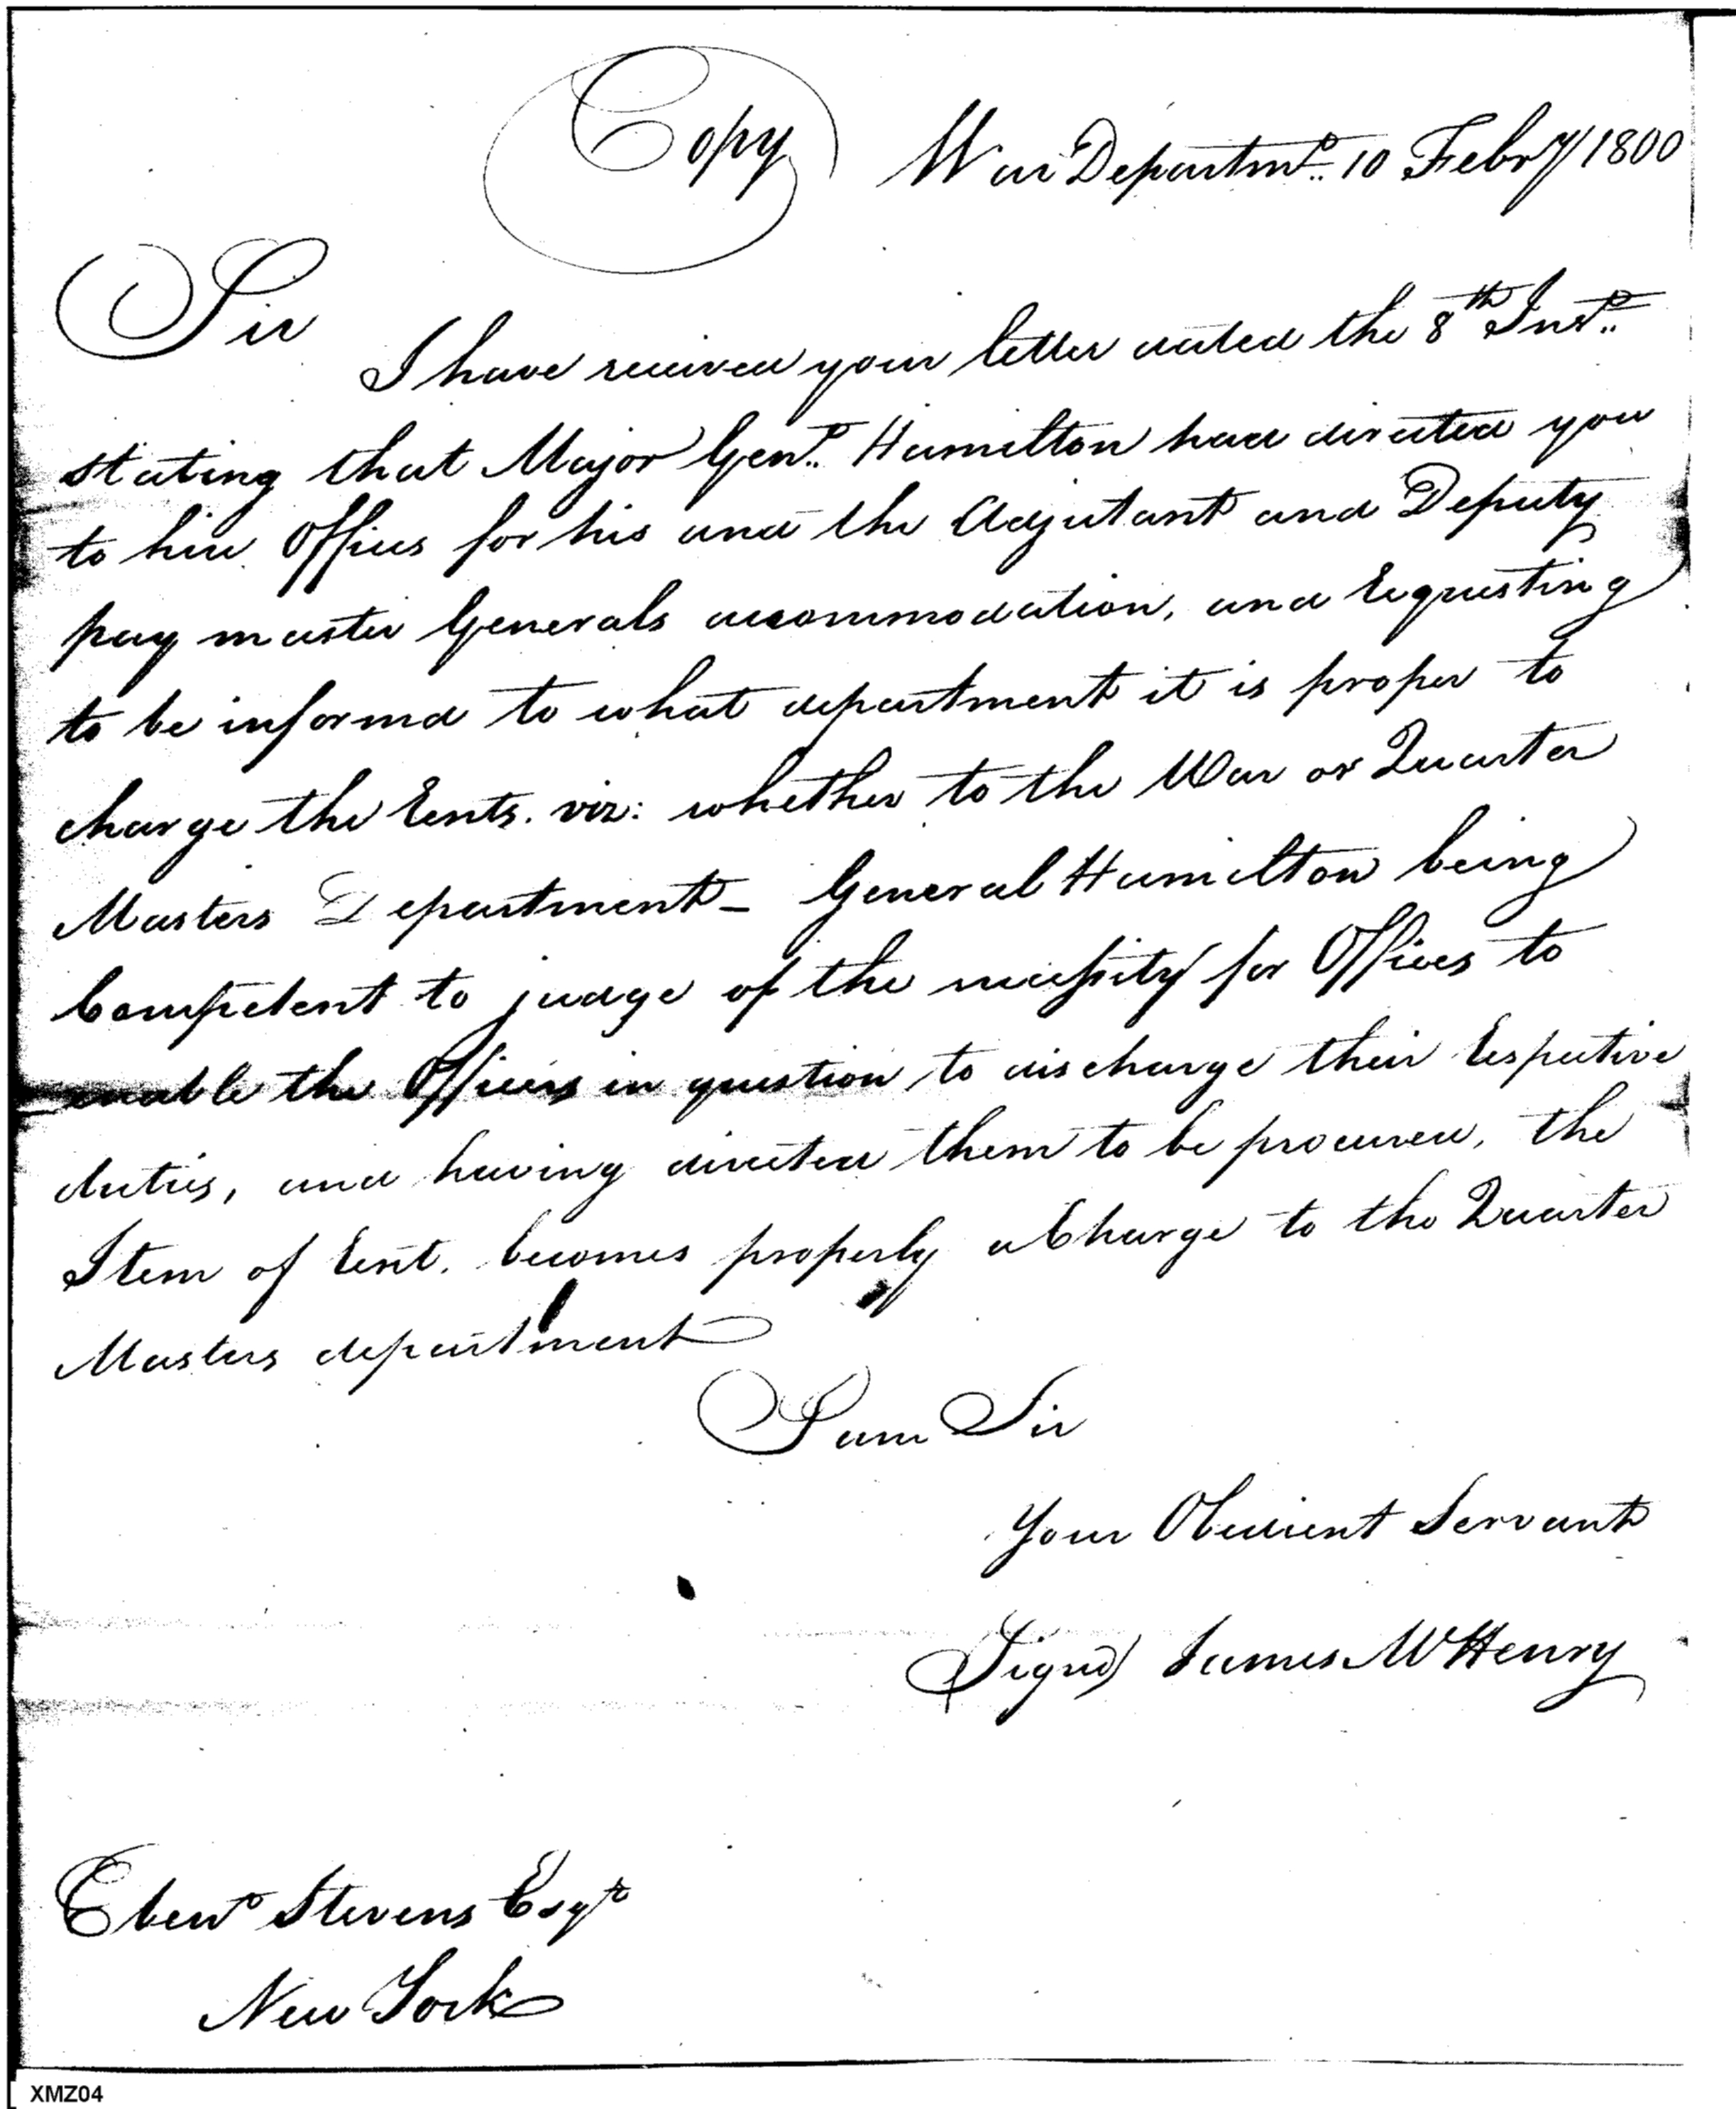 Copy
War Departmt. 10 Febry 1800
Sir
I have received your letter dated the 8th Inst.
stating that Major Genl. Hamilton had directed you
to hire Offices for his and the Adjutant and Deputy
pay master Generals accommodation, and requesting
to be informd to what department it is proper to
charge the rents. viz: whether to the War or Quarter
Masters Department - General Hamilton being
Competent to judge of the necessity for Offices to
enable the Officers in question to discharge their respective
duties, and having directed them to be procured, the
Item of rent. becomes properly a Charge to the Quarter
Masters department
I am Sir
Your Obedient Servant
Signd) James McHenry
Ebenr Stevens Esqr
New York
XMZ04